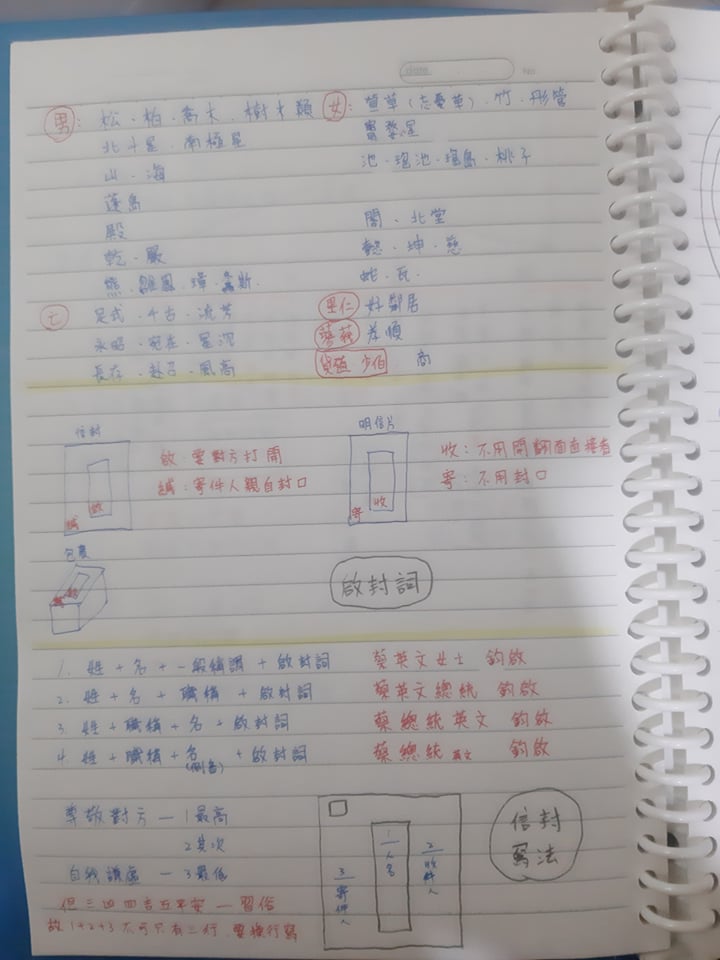 date
No
男：松、柏、喬木、樹木類
女：萱草(忘憂草)、竹、彤管
北斗星、南極星
寶婺星
山、海
池、瑤池、瑤島、桃子
蓬島
殿
閣、北堂
乾、嚴
懿、坤、慈
熊、雛鳳、璋、螽斯
蛇、瓦
亡 足式、千古、流芳
里仁 好鄰居
永昭、宛在、星沉
蓼莪 孝順
長存、赴召、風高
貨殖 方伯 商
信封
明信片
啟：要對方打開
緘：寄件人親自封口
收：不用開翻面直接看
寄：不用封口
緘 啟
寄 收
包裹
啟封詞
1. 姓+名+一般稱謂+啟封詞 蔡英文女士 鈞啟
2. 姓+名+職稱+啟封詞 蔡英文總統 鈞啟
3. 姓+職稱+名+啟封詞 蔡總統英文 鈞啟
4. 姓+職稱+名(側書)+啟封詞 蔡總統英文 鈞啟
尊敬對方—1最高
2其次
自我謙虛—3最低
但三凶四吉五平安—習俗
故1+2+3不可只有三行，要換行寫
1 人名
2 收件人
3 寄件人
信封
寫法